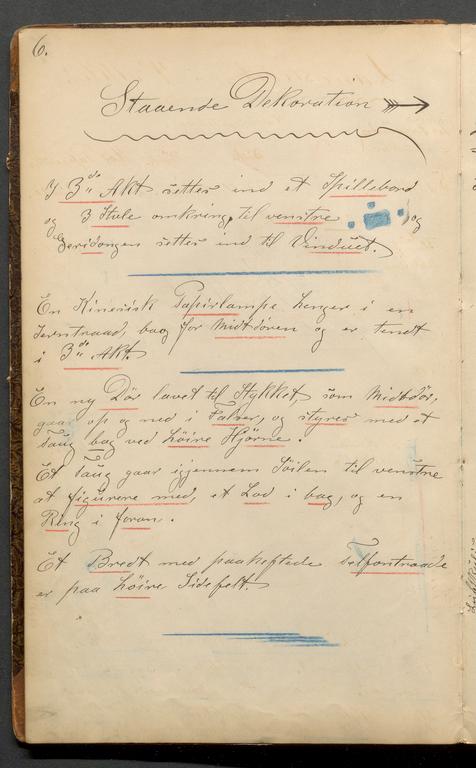 6.
Staaende Dekoration
I 3die Akt settes ind et Spillebord
og 3 Stole omkring, til venstre og
Geridongen settes ind til Vinduet.
En Kinesisk Papirlampe henger i en
Jerntraad, bag for Midtdøren og er tendt
i 3die Akt.
En ny Dør lavet til Stykket som Midtdør,
gaar op og ned i Falser, og styres med et
Taug bag ved høire Hjørne.
Et Taug gaar igjennem Søilen til venstre
at figurere med, et Lod i bag, og en
Ring i foran.
Et Bredt med paaheftede Telfontraade
er paa høire Sidefelt.